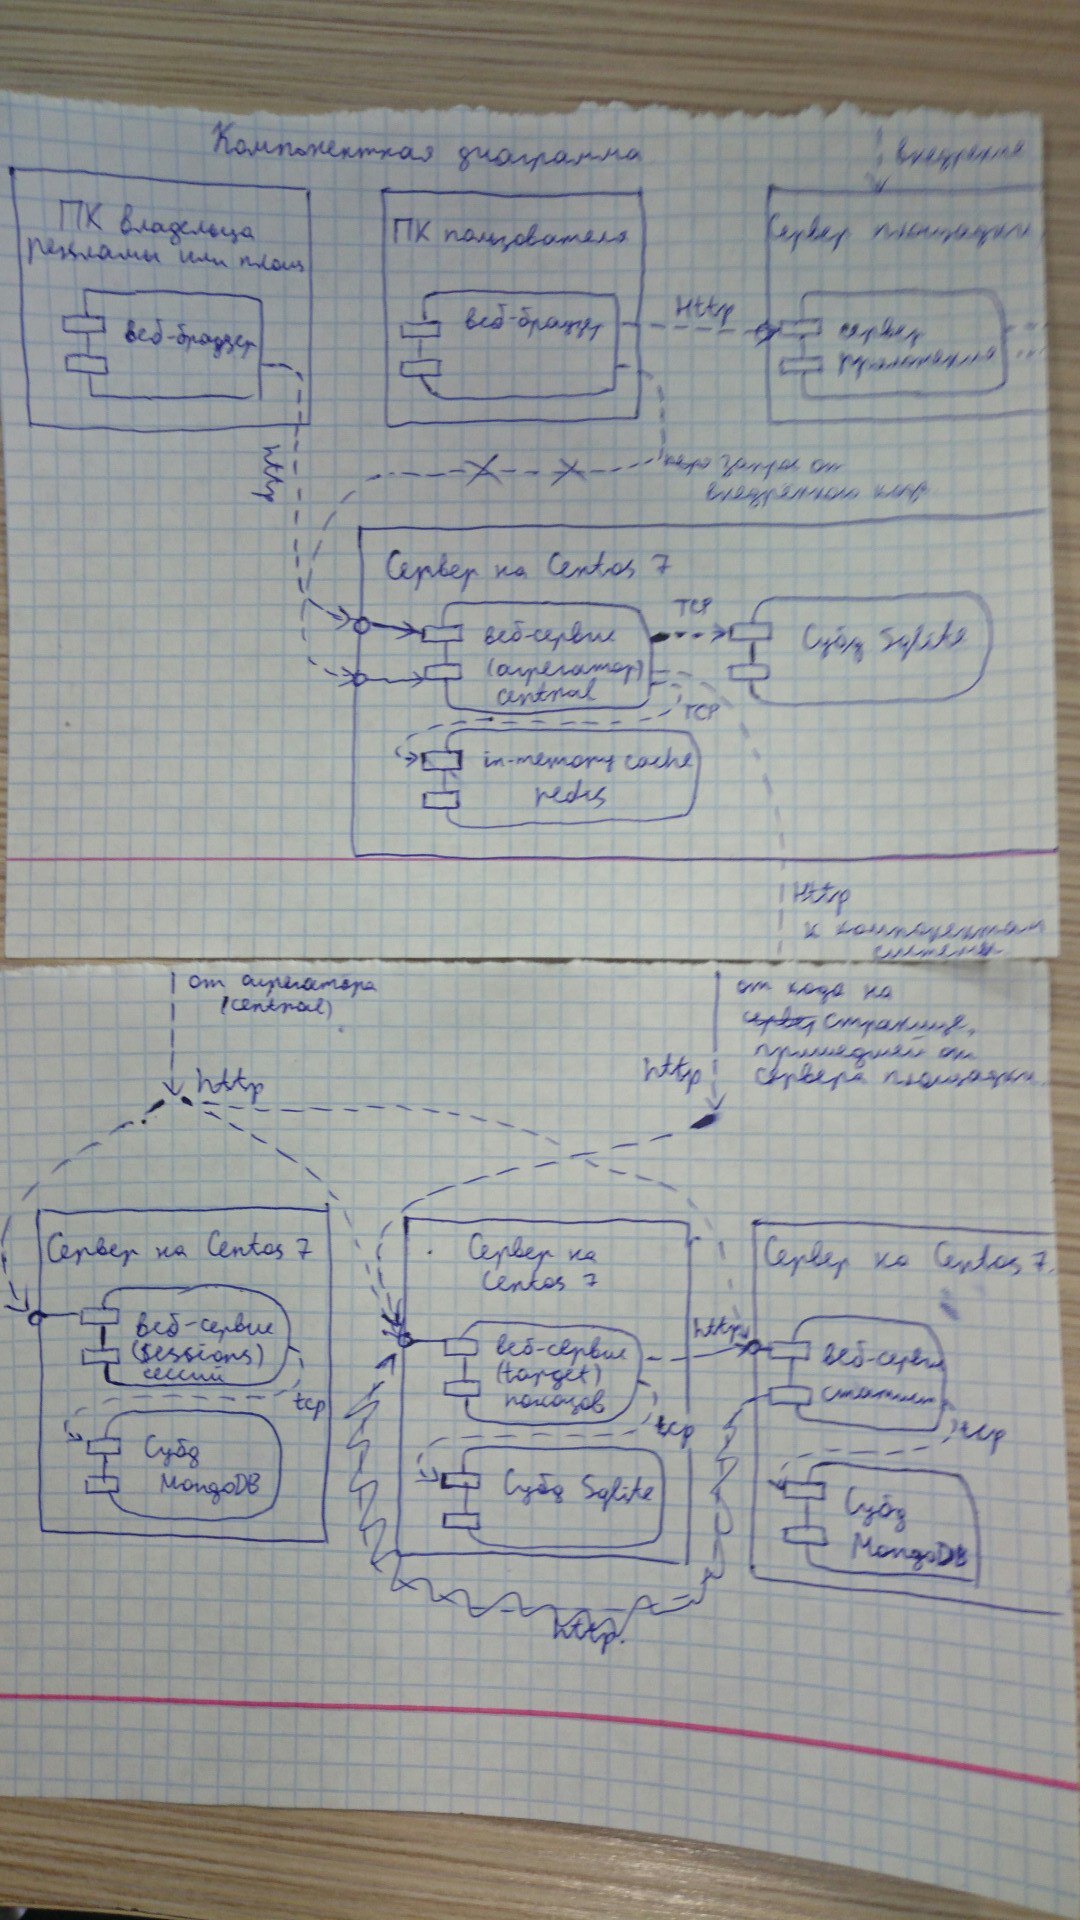 Компонентная диаграмма
внедрение
ПК владельца
рекламы или площ
веб-браузер
ПК пользователя
веб-браузер
Http
Сервер площадки
сервер
приложения
http
запрос от
внедрённого кода
Сервер на Centos 7
веб-сервис
(агрегатор)
central
TCP
Субд Sqlite
TCP
in-memory cache
redis
Http
к компонентам
системы
от агрегатора
(central)
http
от кода на
странице,
пришедшей от
сервера площадки
http
Сервер на Centos 7
веб-сервис
(sessions)
сессий
tcp
Субд
MongoDB
Сервер на
Centos 7
веб-сервис
(target)
показов
http
tcp
Субд Sqlite
Сервер на Centos 7.
веб-сервис
статист
tcp
Субд
MongoDB
http.